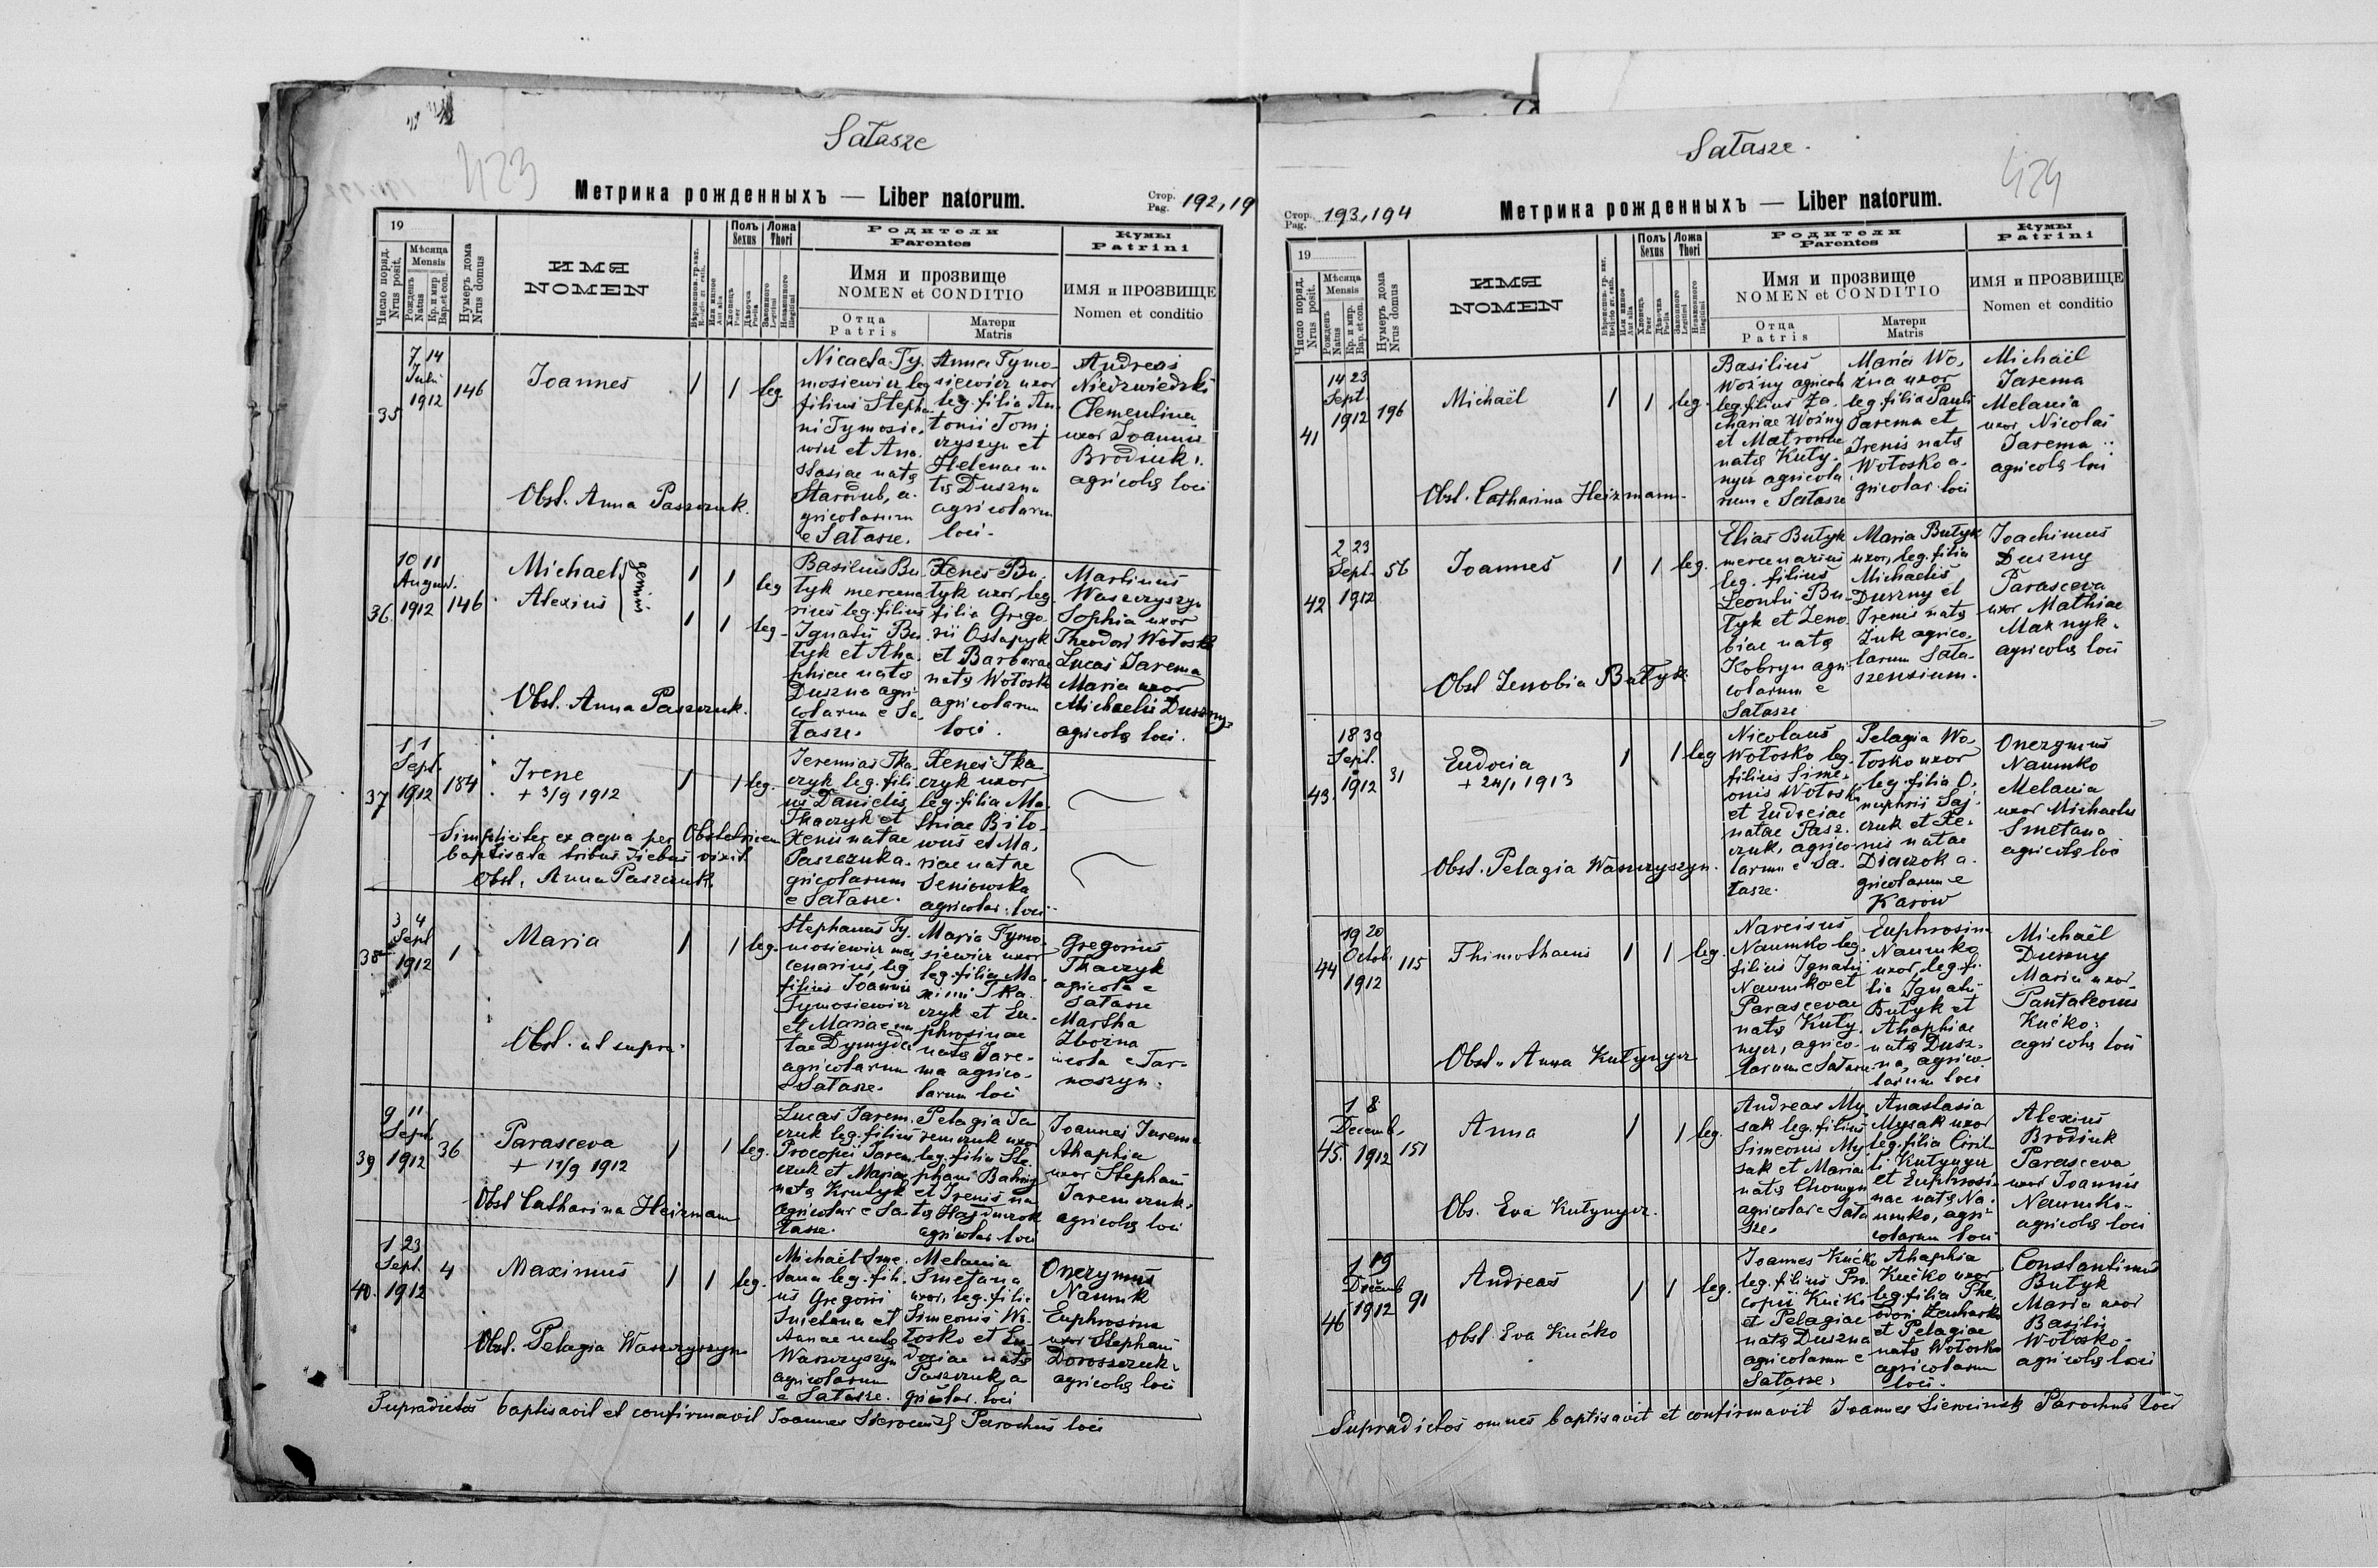 Sałasze
423
Метрика рожденныхъ — Liber natorum.
Стор.
Pag. 192, 19
19
Число поряд.
Nrus posit.
Мѣсяца
Mensis
Рожденъ
Natus
Кр. и мир
Bap. et con.
Нумеръ дома
Nrus domus
ИМЯ
NOMEN
Полъ
Sexus
Хлопецъ
Puer
Дѣвочка
Puella
Ложа
Thori
Законного
Legitimi
Незаконного
Illegitimi
Родители
Parentes
Имя и прозвище
NOMEN et CONDITIO
Отца
Patris
Матери
Matris
Кумы
Patrini
ИМЯ и ПРОЗВИЩЕ
Nomen et conditio
35
7 14
Julii
1912
146
Joannes
1 1 leg.
Obst. Anna Paszczuk.
Nicaeta Ty-
mosiewicz leg.
filius Stepha-
ni Tymosie-
wicz et Ana-
stasiae natę
Starodub, a-
gricolarum
e Sałasze.
Anna Tymo-
siewicz uxor
leg. filia An-
tonii Tom-
czyszyn et
Helenae na-
tę Duszna
agricolarum
loci.
Andreas
Niedzwiedzki
Clementina
uxor Joannis
Brodiuk
agricolę loci
36.
10 11
August.
1912
146
Michael
Alexius
gemini
1 1 leg
1 1 leg
Obst. Anna Paszczuk.
Basilius Bu-
tyk mercena-
rius leg. filius
Ignatii Bu-
tyk et Aha-
phiae natę
Duszna agri-
colarum e Sa-
łasze.
Xenes Bu-
tyk uxor, leg.
filia Grego-
rii Ostapyk
et Barbarae
natę Wołosk
agricolarum
loci.
Martinus
Waszczyszyn
Sophia uxor
Theodori Wołosko
Lucas Jarema
Maria uxor
Michaelis Duszny
agricolę loci.
37
1 1
Sept.
1912
184
Irene
+ 3/9 1912
1 1 leg.
Simpliciter ex aqua per Obstetricem
baptisata tribus diebus vixit.
Obst. Anna Paszczuk
Jeremias Tka-
czyk leg. fili-
us Danielis
Tkaczyk et
Xenis natae
Paszczuk a-
gricolarum
e Sałasze.
Xenes Tka-
czyk uxor
leg. filia Ma-
thiae Biło-
wus et Ma-
riae natae
Seniowska
agricolar. loci
38
3 4
Sept
1912
1
Maria
1 1 leg.
Obst. ut supra
Stephanus Ty-
mosiewicz mer-
cenarius, leg.
filius Joannis
Tymosiewicz
et Mariae na-
tae Dymyda
agricolarum
e Sałasze.
Maria Tymo-
siewicz uxor
leg. filia Ma-
ximi Tka-
czyk et Eu-
phrosinae
natę Jare-
ma agrico-
larum loci
Gregorius
Tkaczyk
agricola e
Sałasze
Martha
Zborna
incola e Tar-
noszyn.
39
9 11
Sept.
1912
36
Parasceva
+ 11/9 1912
1 1 leg.
Obst Catharina Heizmann
Lucas Jarem-
czuk leg. filius
Procopii Jarem-
czuk et Mariae
natę Krutyk
agricolar e Sa-
łasze.
Pelagia Ja-
remczuk uxor
leg. filia Ste-
phani Bahnij
et Irenis na-
tę Hajduczok
agricolar. loci
Joannes Jarema
Ahaphia
uxor Stephani
Jaremczuk
agricolę loci
40.
1 23
Sept.
1912
4
Maximus
1 1 leg.
Obst. Pelagia Waszczyszyn
Michaël Sme-
tana leg. fili-
us Gregorii
Smetana et
Annae natę
Waszczyszyn
agricolarum
e Sałasze.
Melania
Smetana
uxor, leg. filia
Simeonis Wo-
łosko et Eu-
dociae natę
Paszczuk, a-
gricolar. loci
Onezymus
Naumk
Euphrosina
uxor Stephani
Doroszczuk
agricolę loci
Supradictos baptisavit et confirmavit Joannes Parochus loci
Sałasze.
424
Стор.
Pag. 193, 194
Метрика рожденныхъ — Liber natorum.
19
Число поряд.
Nrus posit.
Мѣсяца
Mensis
Рожденъ
Natus
Кр. и мир.
Bap. et con.
Нумеръ дома
Nrus domus
ИМЯ
NOMEN
Полъ
Sexus
Хлопецъ
Puer
Дѣвчка
Puella
Ложа
Thori
Законного
Legitimi
Незаконного
Illegitimi
Родители
Parentes
Имя и прозвище
NOMEN et CONDITIO
Отца
Patris
Матери
Matris
Кумы
Patrini
ИМЯ и ПРОЗВИЩЕ
Nomen et conditio
41
14 23
Sept
1912
196
Michaël
1 1 leg.
Obst. Catharina Heizmann
Basilius
Woźny agricola
leg. filius Za-
chariae Woźny
et Matronae
natę Kuty-
nycz agricola-
rum e Sałasze
Maria Wo-
źna uxor
leg. filia Pauli
Jarema et
Irenis natę
Wołosko a-
gricolar. loci
Michaël
Jarema
Melania
uxor Nicolai
Jarema
agricolę loci
42
2 23
Sept.
1912
56
Joannes
1 1 leg.
Obst Zenobia Bałyk
Elias Butyk
mercenarius
leg. filius
Leontii Bu-
tyk et Zeno-
biae natę
Kobryn agri-
colarum e
Sałasze
Maria Butyk
uxor, leg. filia
Michaelis
Duszny et
Irenis natę
Żuk agrico-
larum Sała-
szensium.
Joachimus
Duszny
Parasceva
uxor Mathiae
Maznyk
agricolę loci
43.
18 30
Sept.
1912
31
Eudocia
+ 24/1 1913
1 1 leg
Obst. Pelagia Waszczyszyn.
Nicolaus
Wołosko leg.
filius Sime-
onis Wołosko
et Eudociae
natae Pasz-
czuk, agrico-
larum e Sa-
łasze.
Pelagia Wo-
łosko uxor
leg. filia O-
nuphrii Saj-
czuk et Xe-
nis natae
Diaczok a-
gricolarum e
Karow
Onezymus
Naumko
Melania
uxor Michaelis
Smetana
agricolę loci
44
19 20
Octob.
1912
115
Thimothaeus
1 1 leg.
Obst. Anna Kutynycz
Narcisus
Naumko leg.
filius Ignatii
Naumko et
Parascevae
natę Kuty-
nycz, agrico-
larum e Sałasze
Euphrosina
Naumko
uxor, leg. fi-
lia Ignatii
Butyk et
Ahaphiae
natę Dusz-
na, agrico-
larum loci
Michaël
Duszny
Maria uxor
Pantaleonis
Kućko
agricolę loci
45.
1 8
Decemb.
1912
151
Anna
1 1 leg.
Ob. Eva Kutynycz.
Andreas My-
sak leg. filius
Simeonis My-
sak et Mariae
natę Chomyn
agricolar e Sała-
sze.
Anastasia
Mysak uxor
leg. filia Ciril-
li Kutynycz
et Euphrosi-
nae natę Na-
umko, agri-
colarum loci
Alexius
Brodiuk
Parasceva
uxor Joannis
Naumko
agricolę loci
46
1 19
Decemb
1912
91
Andreas
1 1 leg.
Obst. Eva Kućko
Joannes Kućko
leg. filius Pro-
copii Kućko
et Pelagiae
natę Duszna
agricolarum e
Sałasze.
Ahaphia
Kućko uxor
leg. filia The-
odori
et Pelagiae
natę Wołosko
agricolarum
loci.
Constantinus
Butyk
Maria uxor
Basilii
Wołosko
agricolę loci
Supradictos omnes baptisavit et confirmavit Joannes Parochus loci